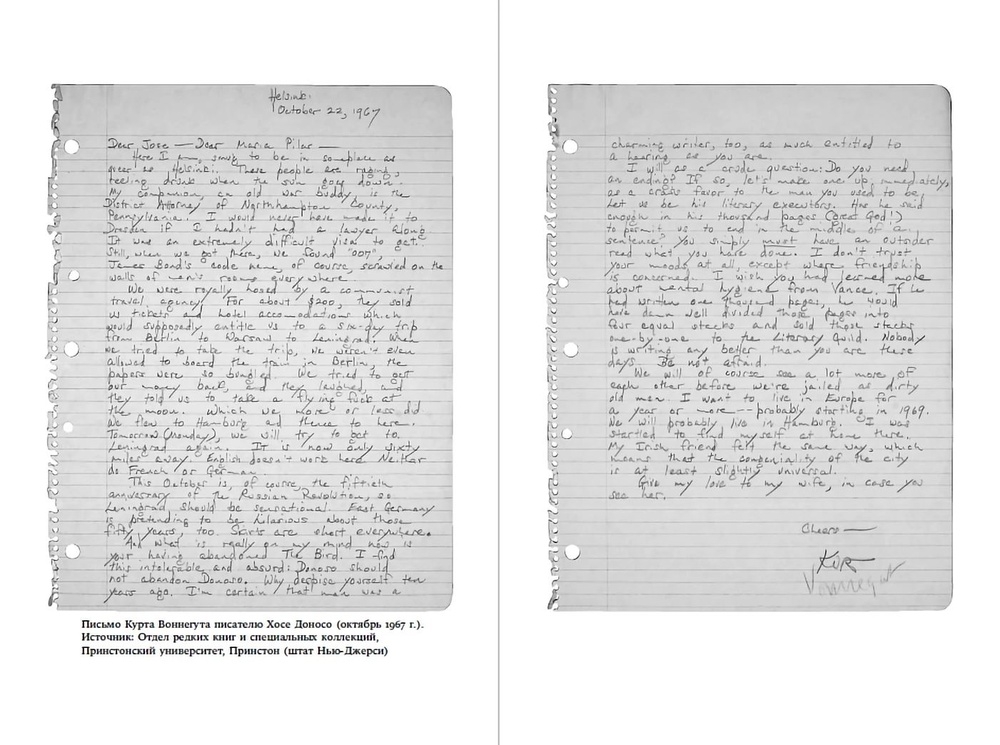 Helsinki
October 22, 1967
Dear Jose — Dear Maria Pilar —
Here I am, smug to be in someplace as
queer as Helsinki. These people are raging,
reeling drunk when the sun goes down.
My companion, an old war buddy, is the
District Attorney of Northhampton County,
Pennsylvania. I would never have made it to
Dresden if I hadn't had a lawyer along.
It was an extremely difficult visa to get.
Still, when we got there, we found "007",
James Bond's code name, of course, scrawled on the
walls of men's rooms everywhere.
We were royally hosed by a communist
travel agency. For about $200, they sold
us tickets and hotel accomodations which
would supposedly entitle us to a six-day trip
from Berlin to Warsaw to Leningrad. When
we tried to take the trip, we weren't even
allowed to board the train in Berlin, the
papers were so bungled. We tried to get
our money back, and they laughed, and
they told us to take a flying fuck at
the moon. Which we more or less did
We flew to Hamburg and thence to here.
Tomorrow (Monday), we will try to get to
Leningrad again. It is now only sixty
miles away. English doesn't work here Neither
do French or German.
This October is, of course, the fiftieth
anniversary of the Russian Revolution, so
Leningrad should be sensational. East Germany
is pretending to be hilarious about those
fifty years, too. Skirts are short everywhere.
And what is really on my mind now is
your having abandoned The Bird. I find
this intolerable and absurd: Donoso should
not abandon Donoso. Why despise yourself ten
years ago. I'm certain that man was a
Письмо Курта Воннегута писателю Хосе Доносо (октябрь 1967 г.).
Источник: Отдел редких книг и специальных коллекций,
Принстонский университет, Принстон (штат Нью-Джерси)
charming writer, too, as much entitled to
a hearing as you are.
I will as a crude question: Do you need
an ending? If so, let's make one up, immediately,
as a crass favor to the man you used to be.
Let us be his literary executors. Has he said
enough in his thousand pages (Great God!)
to permit us to end in the middle of a
sentence? You simply must have an outsider
read what you have done. I don't trust
your moods at all, except where friendship
is concerned. I wish you had learned more
about mental hygiene from Vance. If he
had written one thousand pages, he would
have damn well divided those pages into
four equal stacks and sold those stacks
one-by-one to the Literary Guild. Nobody
is writing any better than you are these
days. Be not afraid.
We will of course see a lot more of
each other before we're jailed as dirty
old men. I want to live in Europe for
a year or more -- probably starting in 1969.
We will probably live in Hamburg. I was
startled to find myself at home there.
My Irish friend felt the same way, which
means that the congeniality of the city
is at least slightly universal.
Give my love to my wife, in case you
see her.
Cheers —
Kurt
Vonnegut